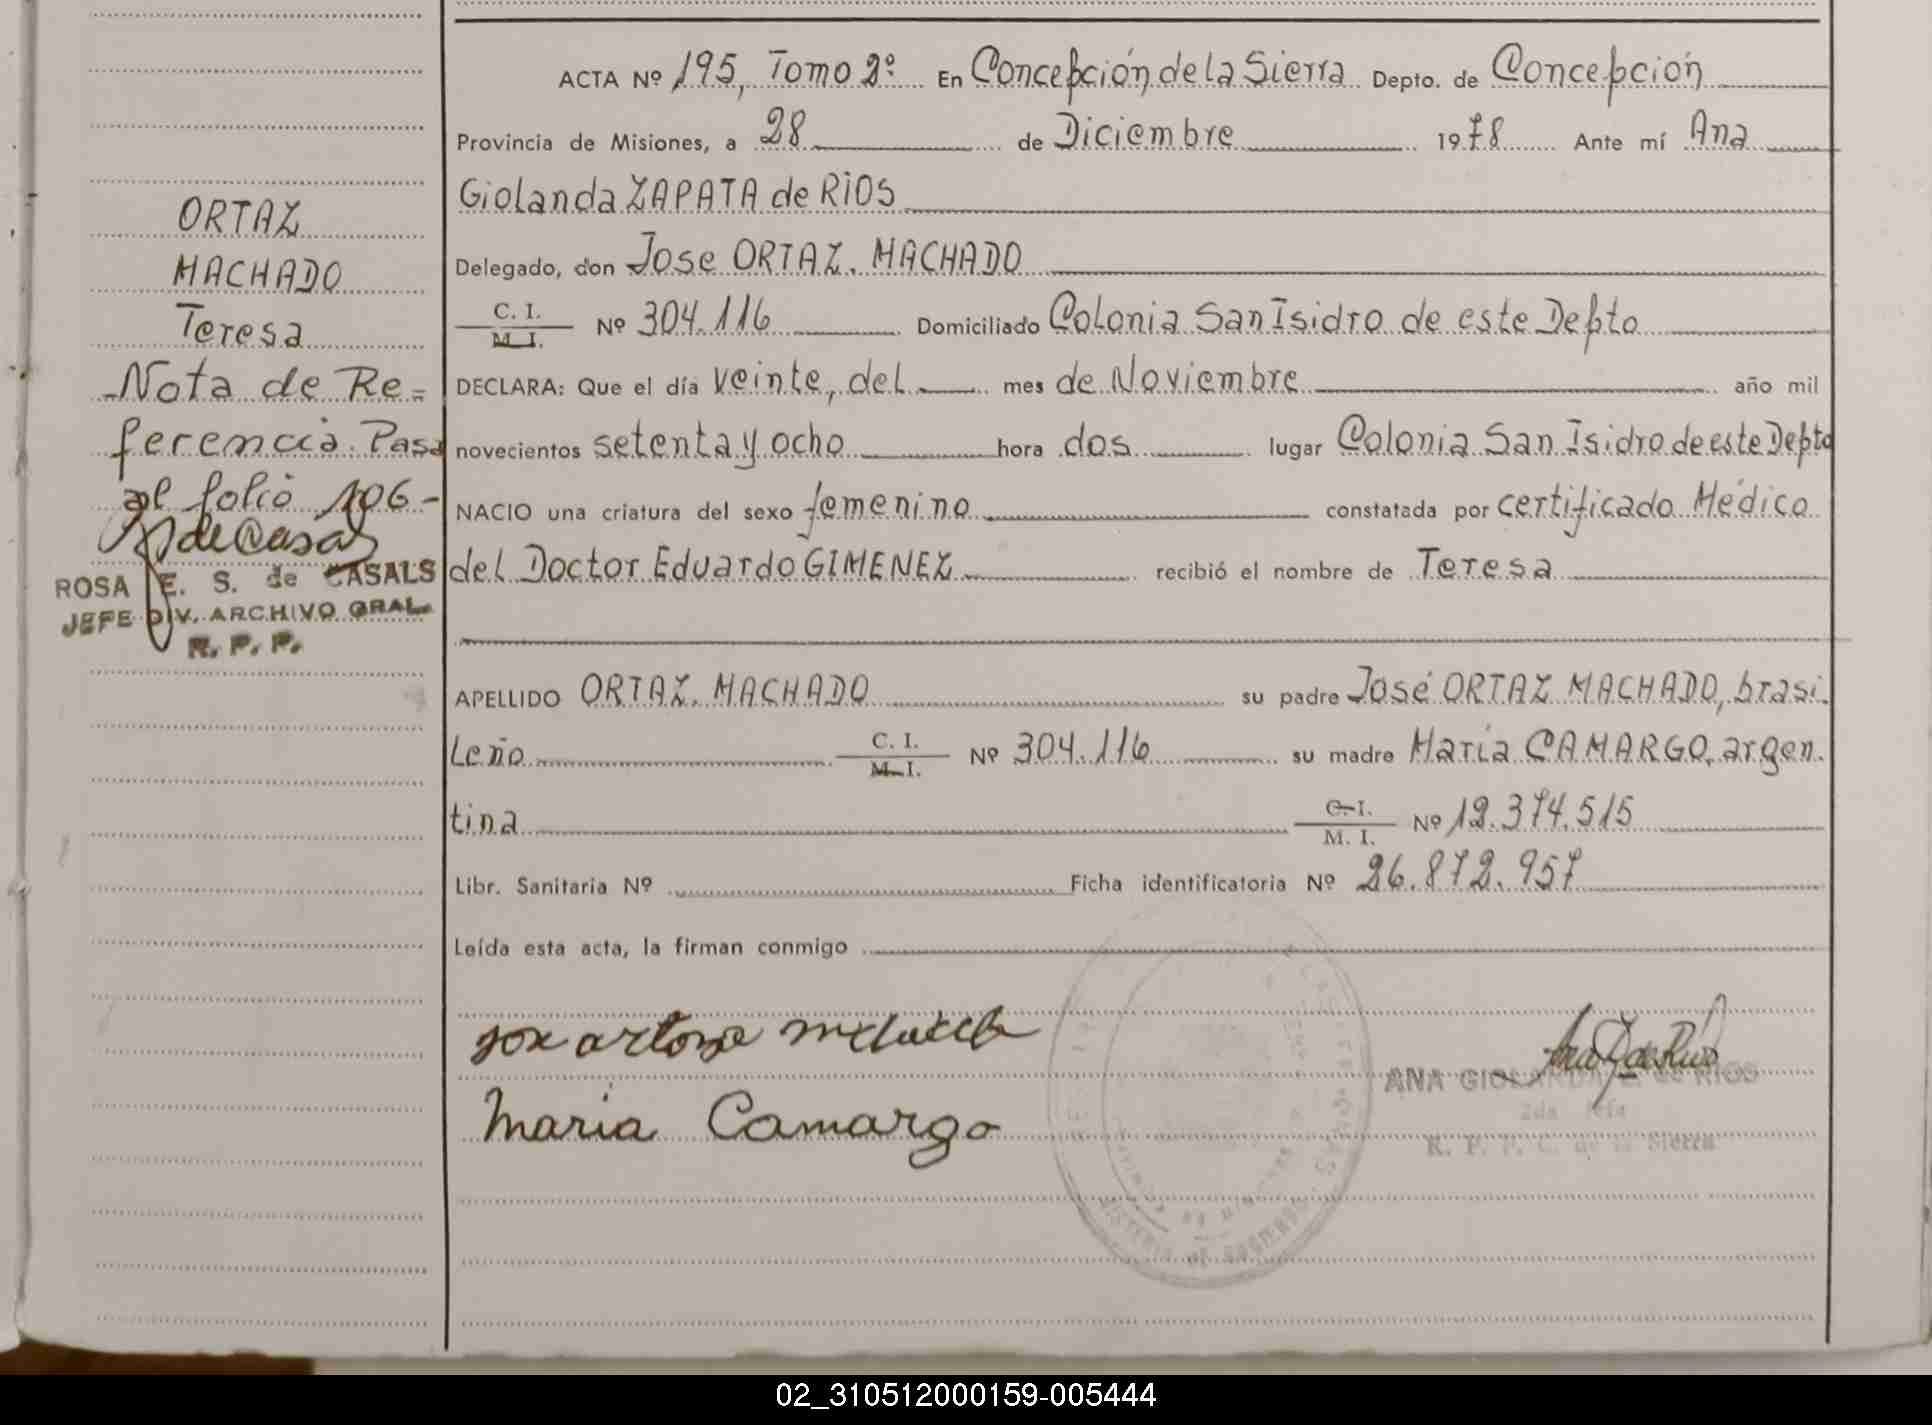 ACTA Nº 195, Tomo 2º En Concepción de la Sierra Depto. de Concepción
Provincia de Misiones, a 28 de Diciembre 1978 Ante mí Ana
Giolanda ZAPATA de RIOS
Delegado, don Jose ORTAZ. MACHADO
C. I.
M. I. Nº 304.116 Domiciliado Colonia San Isidro de este Depto
DECLARA: Que el día veinte, del mes de Noviembre año mil
novecientos setenta y ocho hora dos lugar Colonia San Isidro de este Depto
NACIO una criatura del sexo femenino constatada por certificado Médico
del Doctor Eduardo GIMENEZ recibió el nombre de Teresa
APELLIDO ORTAZ. MACHADO su padre José ORTAZ MACHADO, brasi.
leño C. I.
M. I. Nº 304.116 su madre María CAMARGO, argen.
tina C. I.
M. I. Nº 12.374.515
Libr. Sanitaria Nº Ficha identificatoria Nº 26.872.957
Leída esta acta, la firman conmigo
Maria Camargo
ANA GIOLANDA Z de RIOS
2da Jefa
R. P. P. C. de la Sierra
ORTAZ
MACHADO
Teresa
-Nota de Re=
ferencia. Pasa
al folio 106-
de Casals
ROSA E. S. de CASALS
JEFE DIV. ARCHIVO GRAL.
R. P. P.
02_310512000159-005444